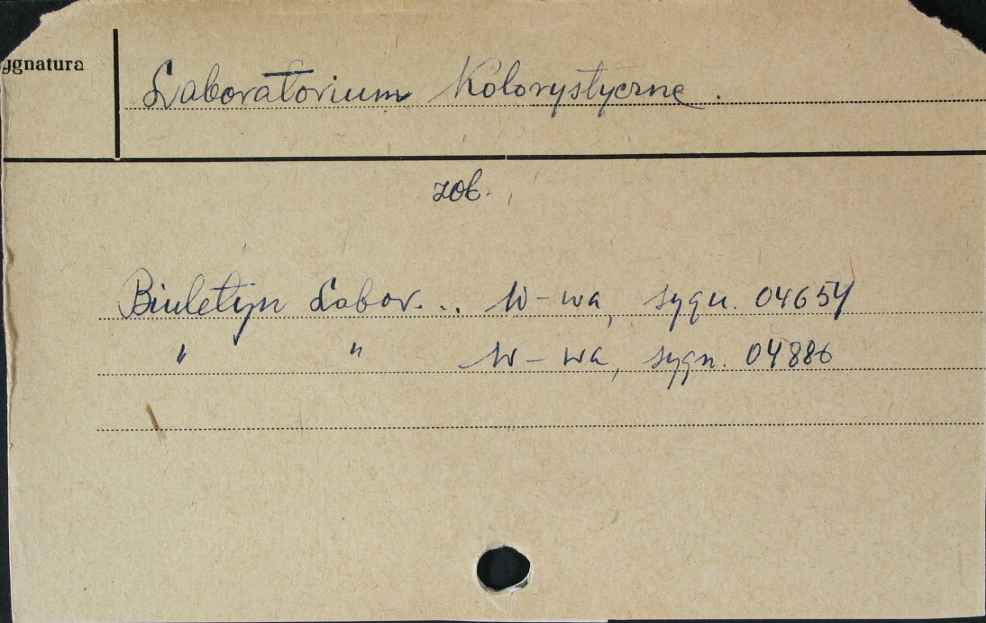 ygnatura
Laboratorium Kolorystyczne.
zob.
Biuletyn Labor... W-wa, sygn. 04654
" " W-wa, sygn. 04886